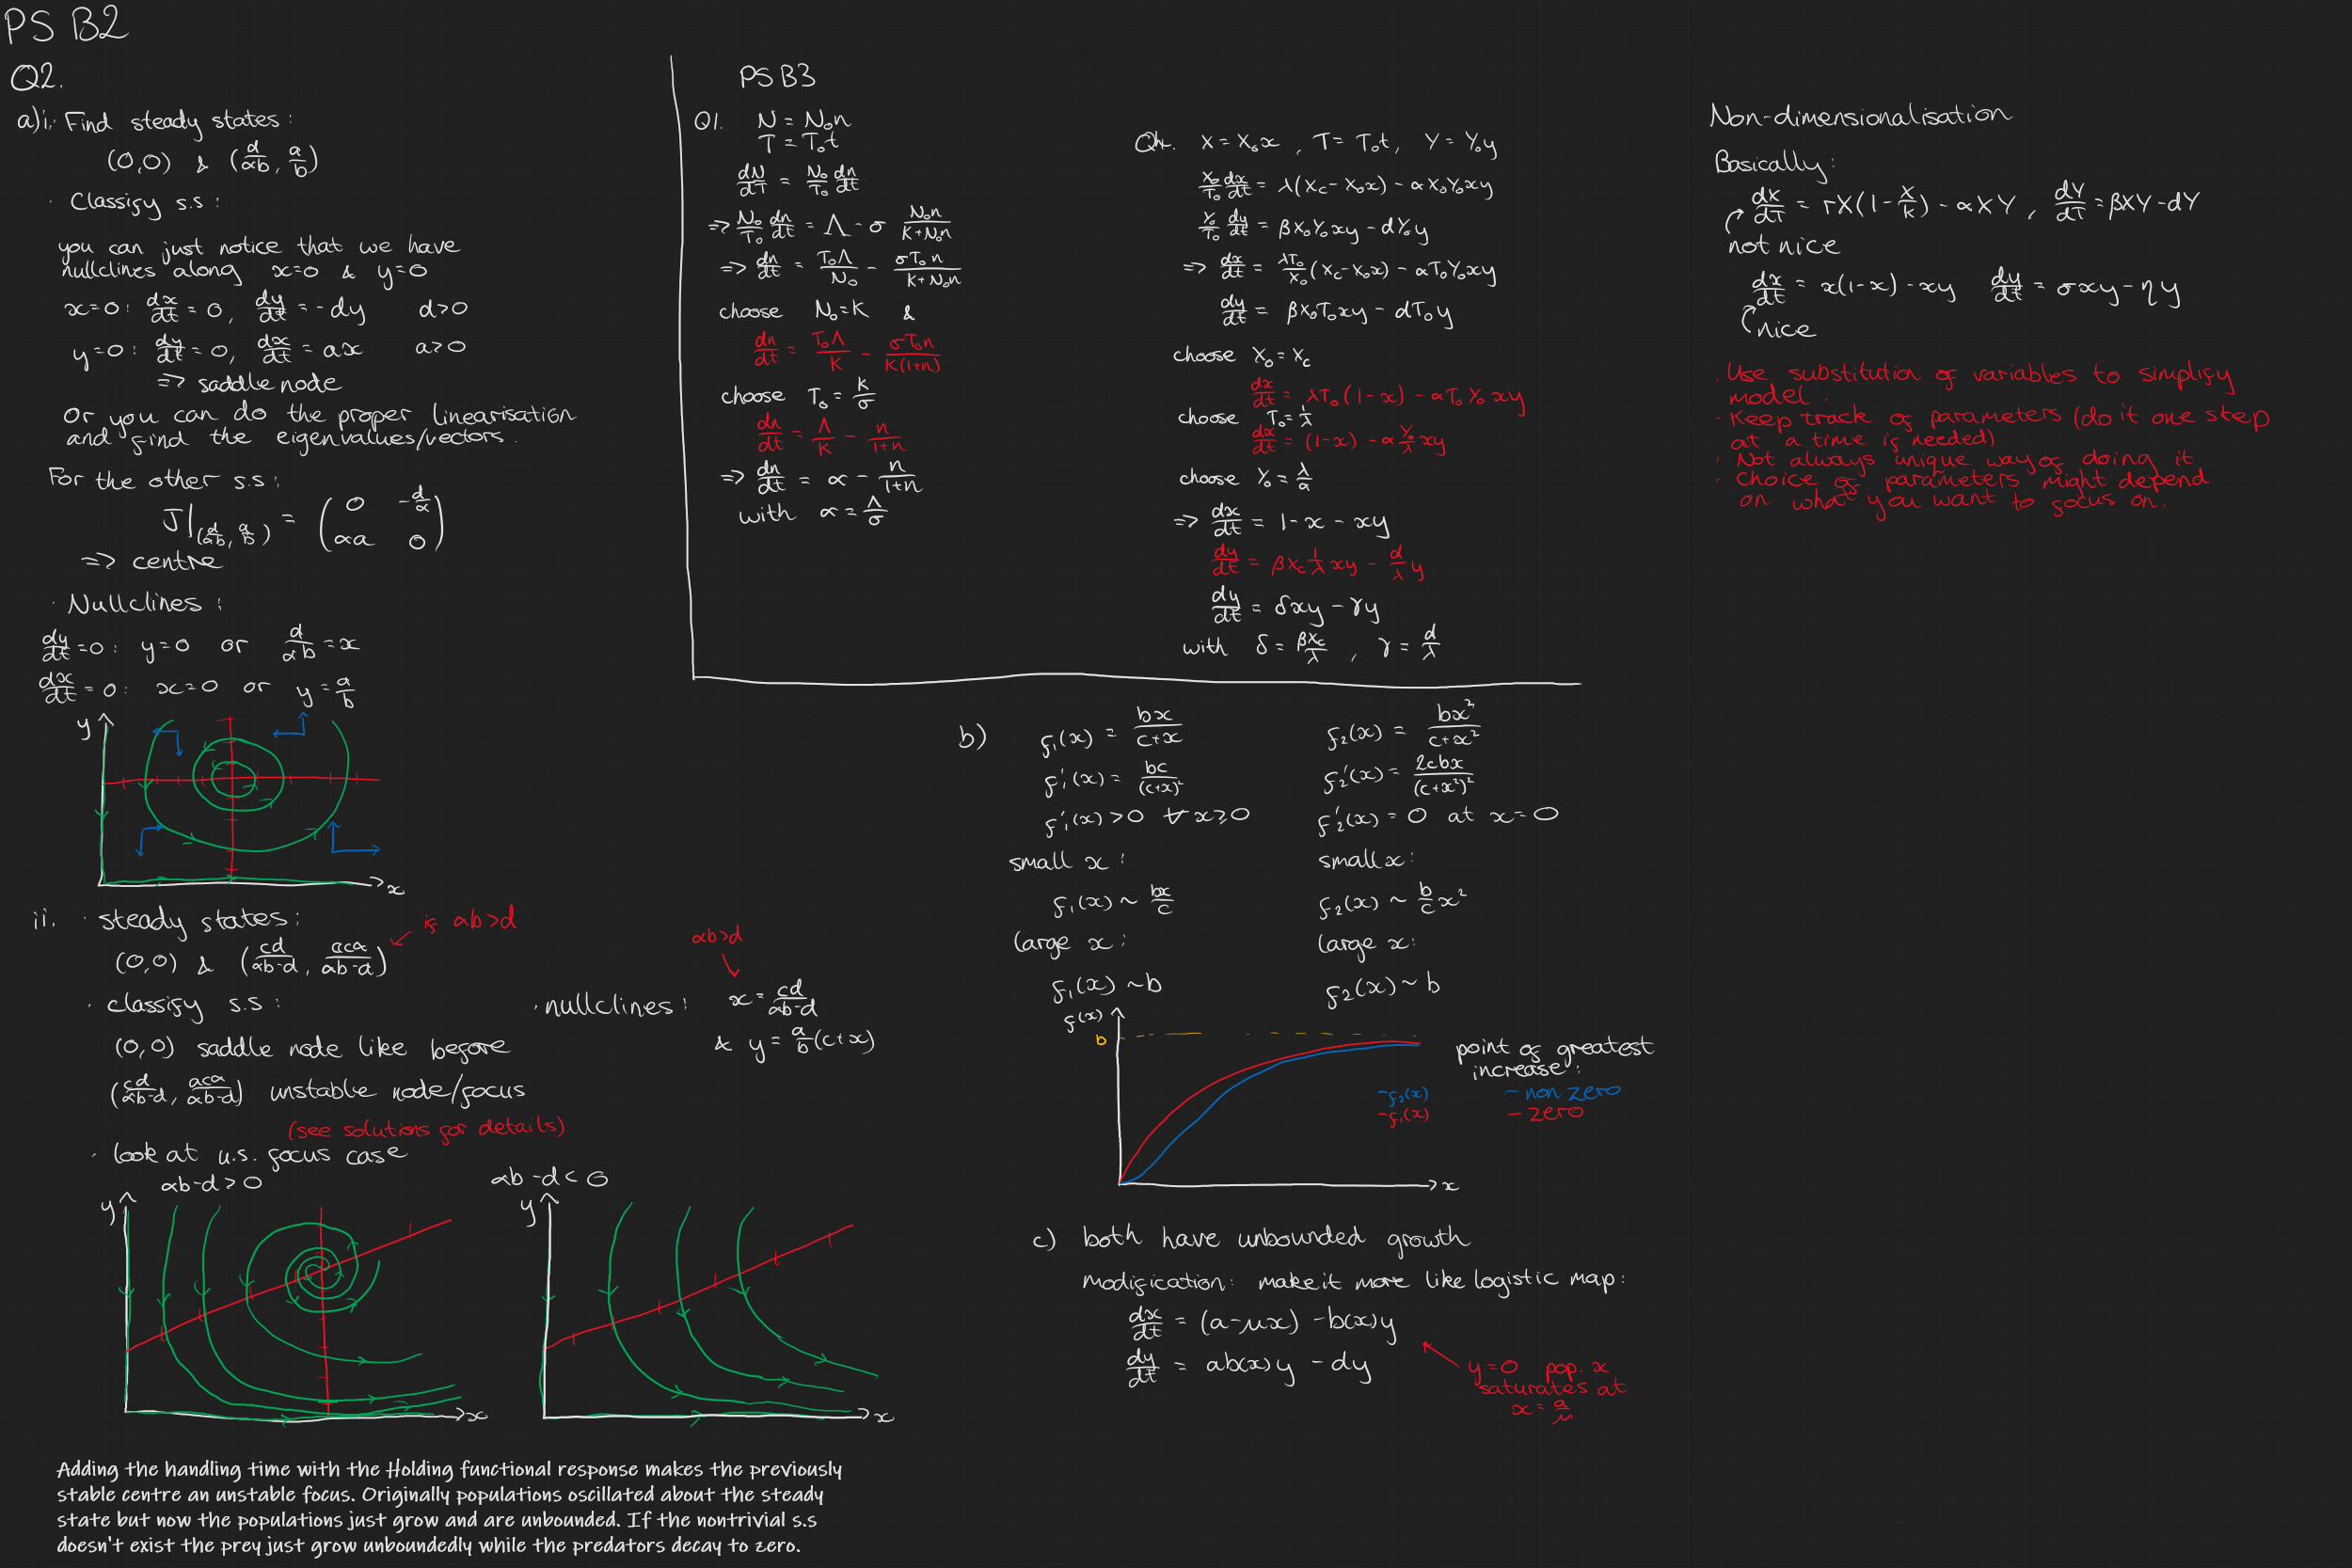 PS B2
Q2.
a)i. Find steady states:
(0,0) & (d/αb, a/b)
· Classify s.s:
you can just notice that we have
nullclines along x=0 & y=0
x=0: dx/dt = 0, dy/dt = -dy d>0
y=0: dy/dt = 0, dx/dt = ax a>0
=> saddle node
Or you can do the proper linearisation
and find the eigenvalues/vectors.
For the other s.s:
J|(d/αb, a/b) = (0 -d/α
αa 0)
=> centre
· Nullclines:
dy/dt = 0: y=0 or d/αb = x
dx/dt = 0: x=0 or y = a/b
y
x
ii. · steady states:
if αb>d
(0,0) & (cd/αb-d, acα/αb-d)
· classify s.s:
(0,0) saddle node like before
(cd/αb-d, acα/αb-d) unstable node/focus
(see solutions for details)
· look at u.s. focus case
αb>d
· nullclines: x = cd/αb-d
& y = a/b(c+x)
αb-d>0
y
x
αb-d<0
y
x
Adding the handling time with the Holding functional response makes the previously
stable centre an unstable focus. Originally populations oscillated about the steady
state but now the populations just grow and are unbounded. If the nontrivial s.s
doesn't exist the prey just grow unboundedly while the predators decay to zero.
PS B3
Q1. N = N₀n
T = T₀t
dN/dT = N₀/T₀ dn/dt
=> N₀/T₀ dn/dt = Λ - σ N₀n/K+N₀n
=> dn/dt = T₀Λ/N₀ - σT₀n/K+N₀n
choose N₀=K &
dn/dt = T₀Λ/K - σT₀n/K(1+n)
choose T₀ = K/σ
dn/dt = Λ/K - n/1+n
=> dn/dt = α - n/1+n
with α = Λ/σ
Q4. X = X₀x, T = T₀t, Y = Y₀y
X₀/T₀ dx/dt = λ(Xc - X₀x) - αX₀Y₀xy
Y₀/T₀ dy/dt = βX₀Y₀xy - dY₀y
=> dx/dt = λT₀/X₀ (Xc - X₀x) - αT₀Y₀xy
dy/dt = βX₀T₀xy - dT₀y
choose X₀ = Xc
dx/dt = λT₀(1-x) - αT₀Y₀xy
choose T₀ = 1/λ
dx/dt = (1-x) - α Y₀/λ xy
choose Y₀ = λ/α
=> dx/dt = 1-x-xy
dy/dt = βXc 1/λ xy - d/λ y
dy/dt = δxy - γy
with δ = βXc/λ, γ = d/λ
b) f₁(x) = bx/c+x
f₁'(x) = bc/(c+x)²
f₁'(x) > 0 ∀ x≥0
small x:
f₁(x) ~ bx/c
large x:
f₁(x) ~ b
f₂(x) = bx²/c+x²
f₂'(x) = 2cbx/(c+x²)²
f₂'(x) = 0 at x=0
small x:
f₂(x) ~ b/c x²
large x:
f₂(x) ~ b
f(x)
b
x
-f₂(x)
-f₁(x)
point of greatest
increase:
- non zero
- zero
c) both have unbounded growth
modification: make it more like logistic map:
dx/dt = (a-μx) - b(x)y
dy/dt = αb(x)y - dy
y=0 pop. x
saturates at
x = a/μ
Non-dimensionalisation
Basically:
dX/dT = rX(1-X/K) - αXY, dY/dT = βXY-dY
not nice
dx/dt = x(1-x) - xy dy/dt = σxy - ηy
nice
· Use substitution of variables to simplify
model.
· Keep track of parameters (do it one step
at a time if needed)
· Not always unique way of doing it
· Choice of parameters might depend
on what you want to focus on.